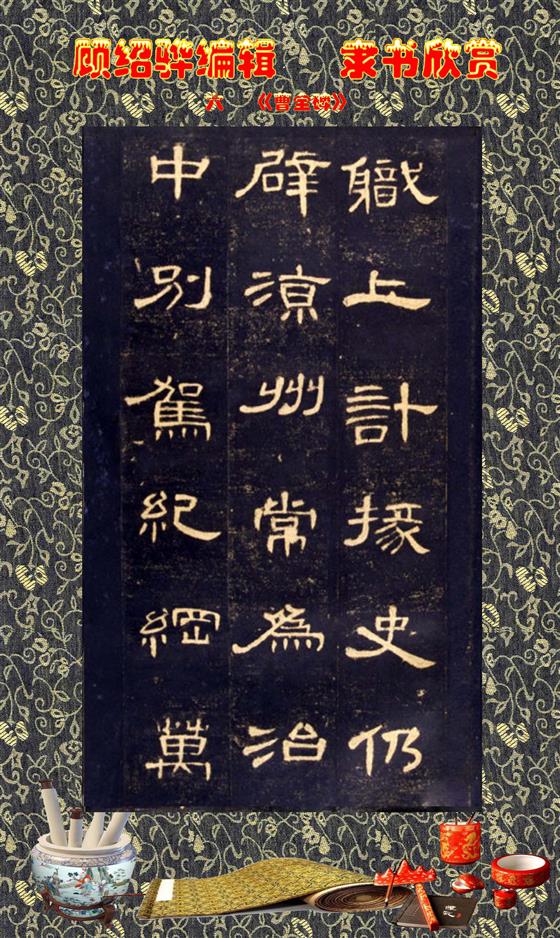 顾绍骅编辑 隶书欣赏
六 《曹全碑》
職上計掾史仍
辟涼州常為治
中別駕紀綱萬